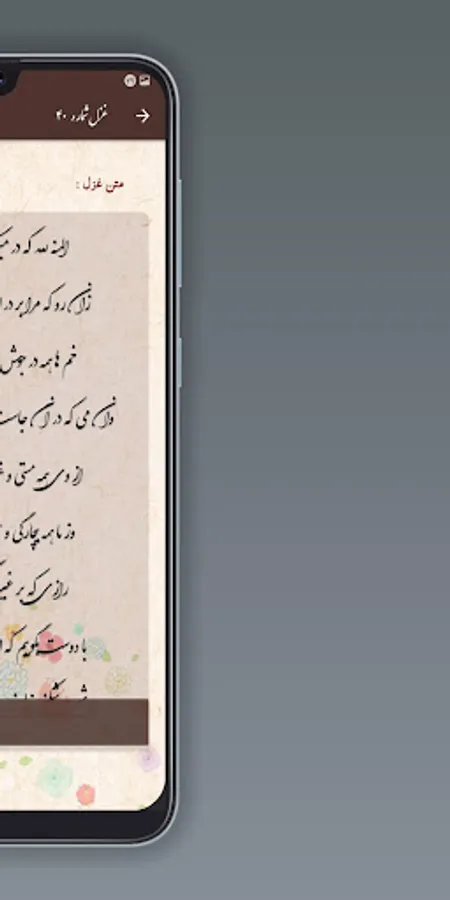 غزل شماره ۴۰
متن غزل :
المنة لله که در
زان رو که مرا بر در
خم ها همه در جوش
وان می که در آن جاست
از وی همه مستی و
وز ما همه بیچارگی و
رازی که بر
با دوست بگوییم که